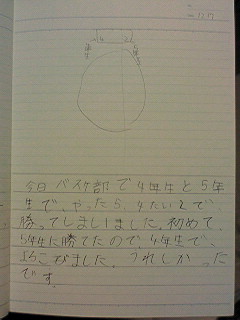 今日バスケ部で4年生と5年
生で、やったら、4たい2で、
勝ってしまいました。初めて、
5年生に勝てたので、4年生で、
よろこびました。うれしかった
です。